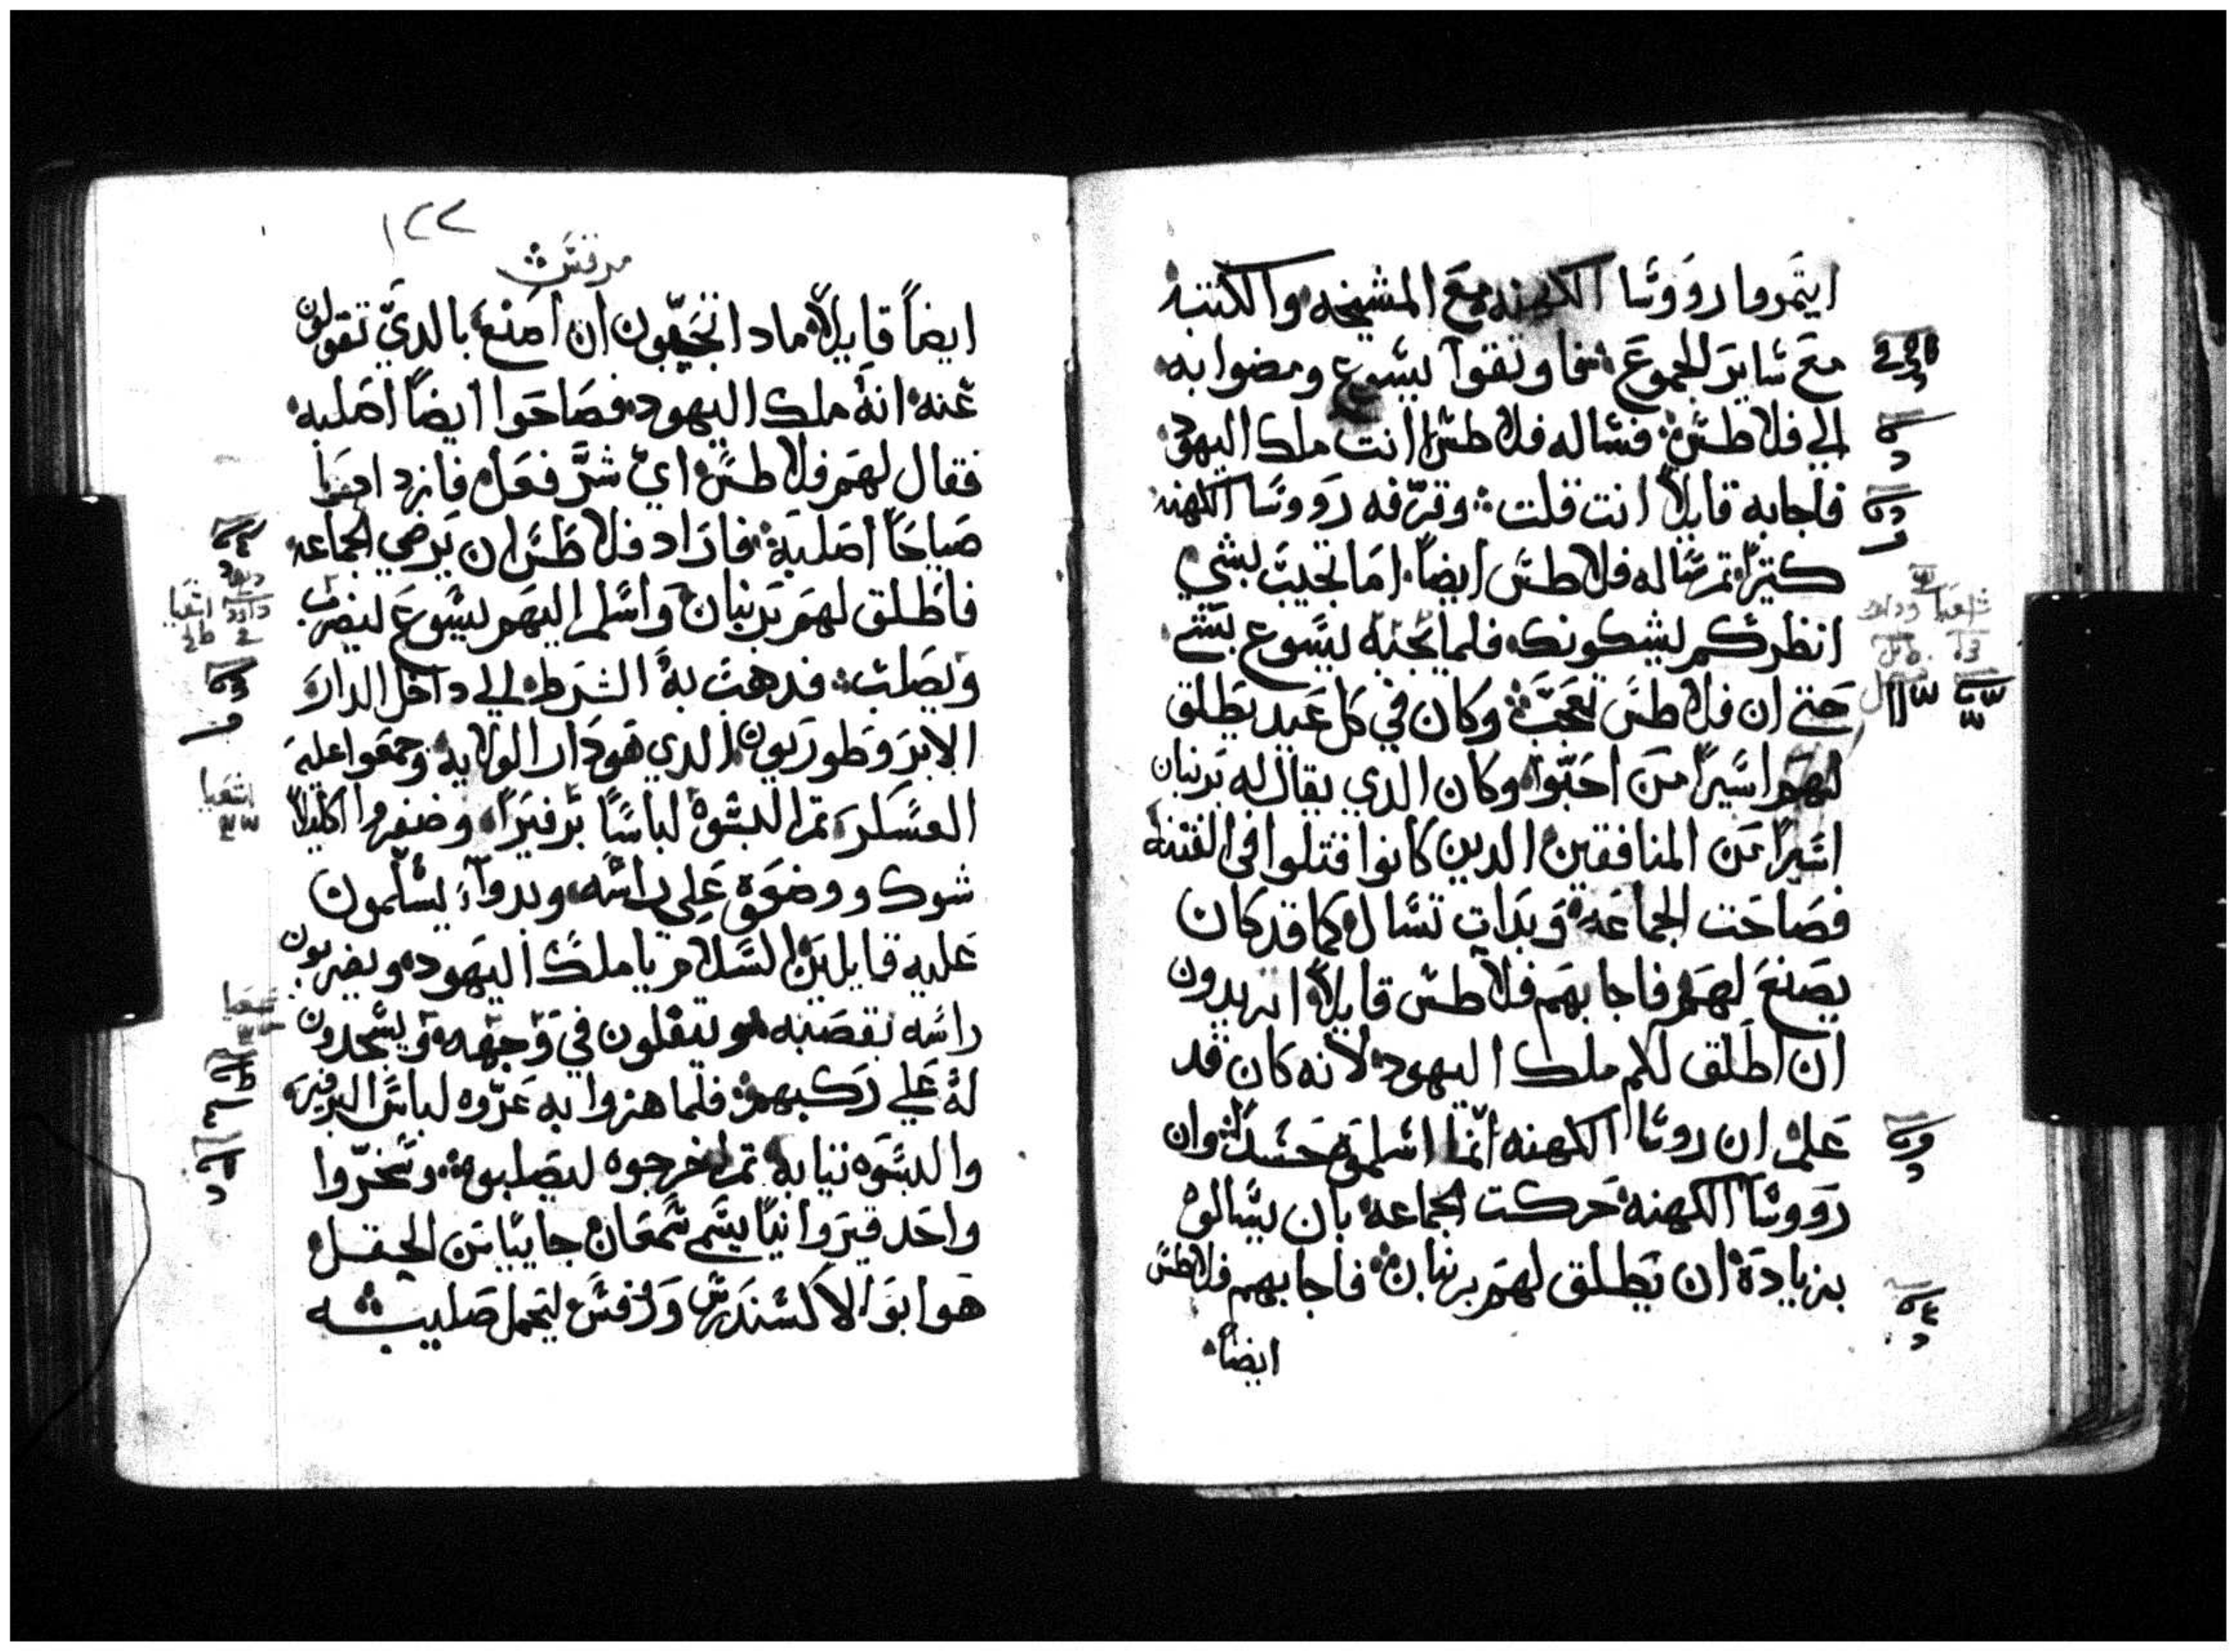 ايتمروا رووسا الكهنه مع المشيخه والكتبه
مع ساير الجموع فاوتقوا يسوع ومضوا به
الي فلاطس فساله فلاطس انت ملك اليهود
فاجابه قايلاً انت قلت وقرفه رووسا الكهنه
كتيرا تم ساله فلاطس ايضاً اما تجيب بشي
انظر كم يشكونك فلم يجبه يسوع بشي
حتي ان فلاطس تعجب وكان في كل عيد يطلق
لهم اسيراً من احبوا وكان الدي يقال له برنبان
اسيراً من المنافقين الدين كانوا قتلوا في الفتنه
فصاحت الجماعه وبدات تساله كما قد كان
يصنع لهم فاجابهم فلاطس قايلاً اتريدون
ان اطلق لكم ملك اليهود لانه كان قد
علم ان روسا الكهنه انما اسلموه حسداً وان
رووسا الكهنه حركت الجماعه بان يسالوه
بزيادة ان يطلق لهم برنبان فاجابهم فلاطس
ايضاً
١٢٢
مرقس
ايضاً قايلاً مادا تحبون ان اصنع بالدي تقولون
عنه انه ملك اليهود فصاحوا ايضاً اصلبه
فقال لهم فلاطس اي شر فعل فازدادوا
صياحاً اصلبه فاراد فلاطس ان يرضي الجماعه
فاطلق لهم برنبان واسلم اليهم يسوع ليضرب
ويصلب فدهبت به الشرط الي داخل الدار
الابروطوريون الدي هو دار الولايه وجمعوا عليه
العسكر تم البسوه لباساً برفيرا وضفروا اكليلاً
شوك ووضعوه علي راسه وبدوا يسلمون
عليه قايلين السلام يا ملك اليهود ويضربون
راسه بقصبه ويتفلون في وجهه ويسجدون
له علي ركبهم فلما هزوا به عروه لباس البرفير
والبسوه تيابه تم اخرجوه ليصلبوه وسخروا
واحد قيروانياً يسم سمعان جايباً من الحقل
هو ابو الاكسندرس وروفس ليحمل صليبه